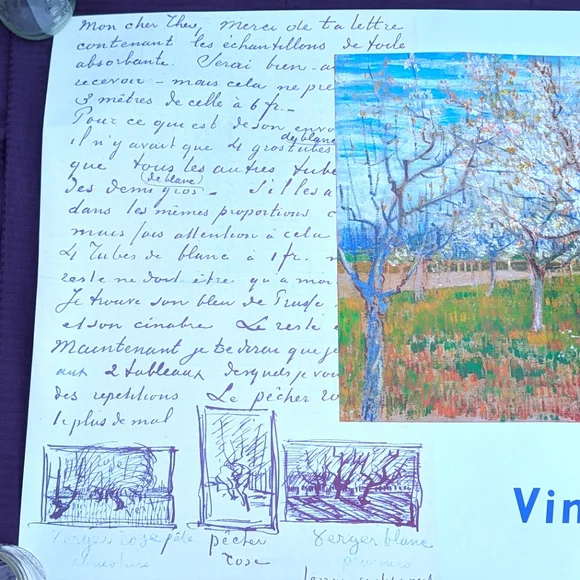 Mon cher Theo, Merci de ta lettre
contenant les échantillons de toile
absorbante. Serai bien
recevoir – mais cela ne pre
3 mètres de celle à 6 fr. –
Pour ce qui est de son envo
il n'y avait que 4 gros tubes
de blanc
que tous les autres tube
(de blanc)
des demi gros – S'il les a
dans les mêmes proportions c
mais fais attention à cela
4 Tubes de blanc à 1 fr.
reste ne doit être qu'a moi
Je trouve son bleu de Prusse
et son cinabre Le reste
Maintenant je te dirai que je
aux 2 tableaux desquels je vou
des repetitions Le pêcher ro
le plus de mal
rose
Verger rose pâle
pêcher
rose
Verger blanc
Vin